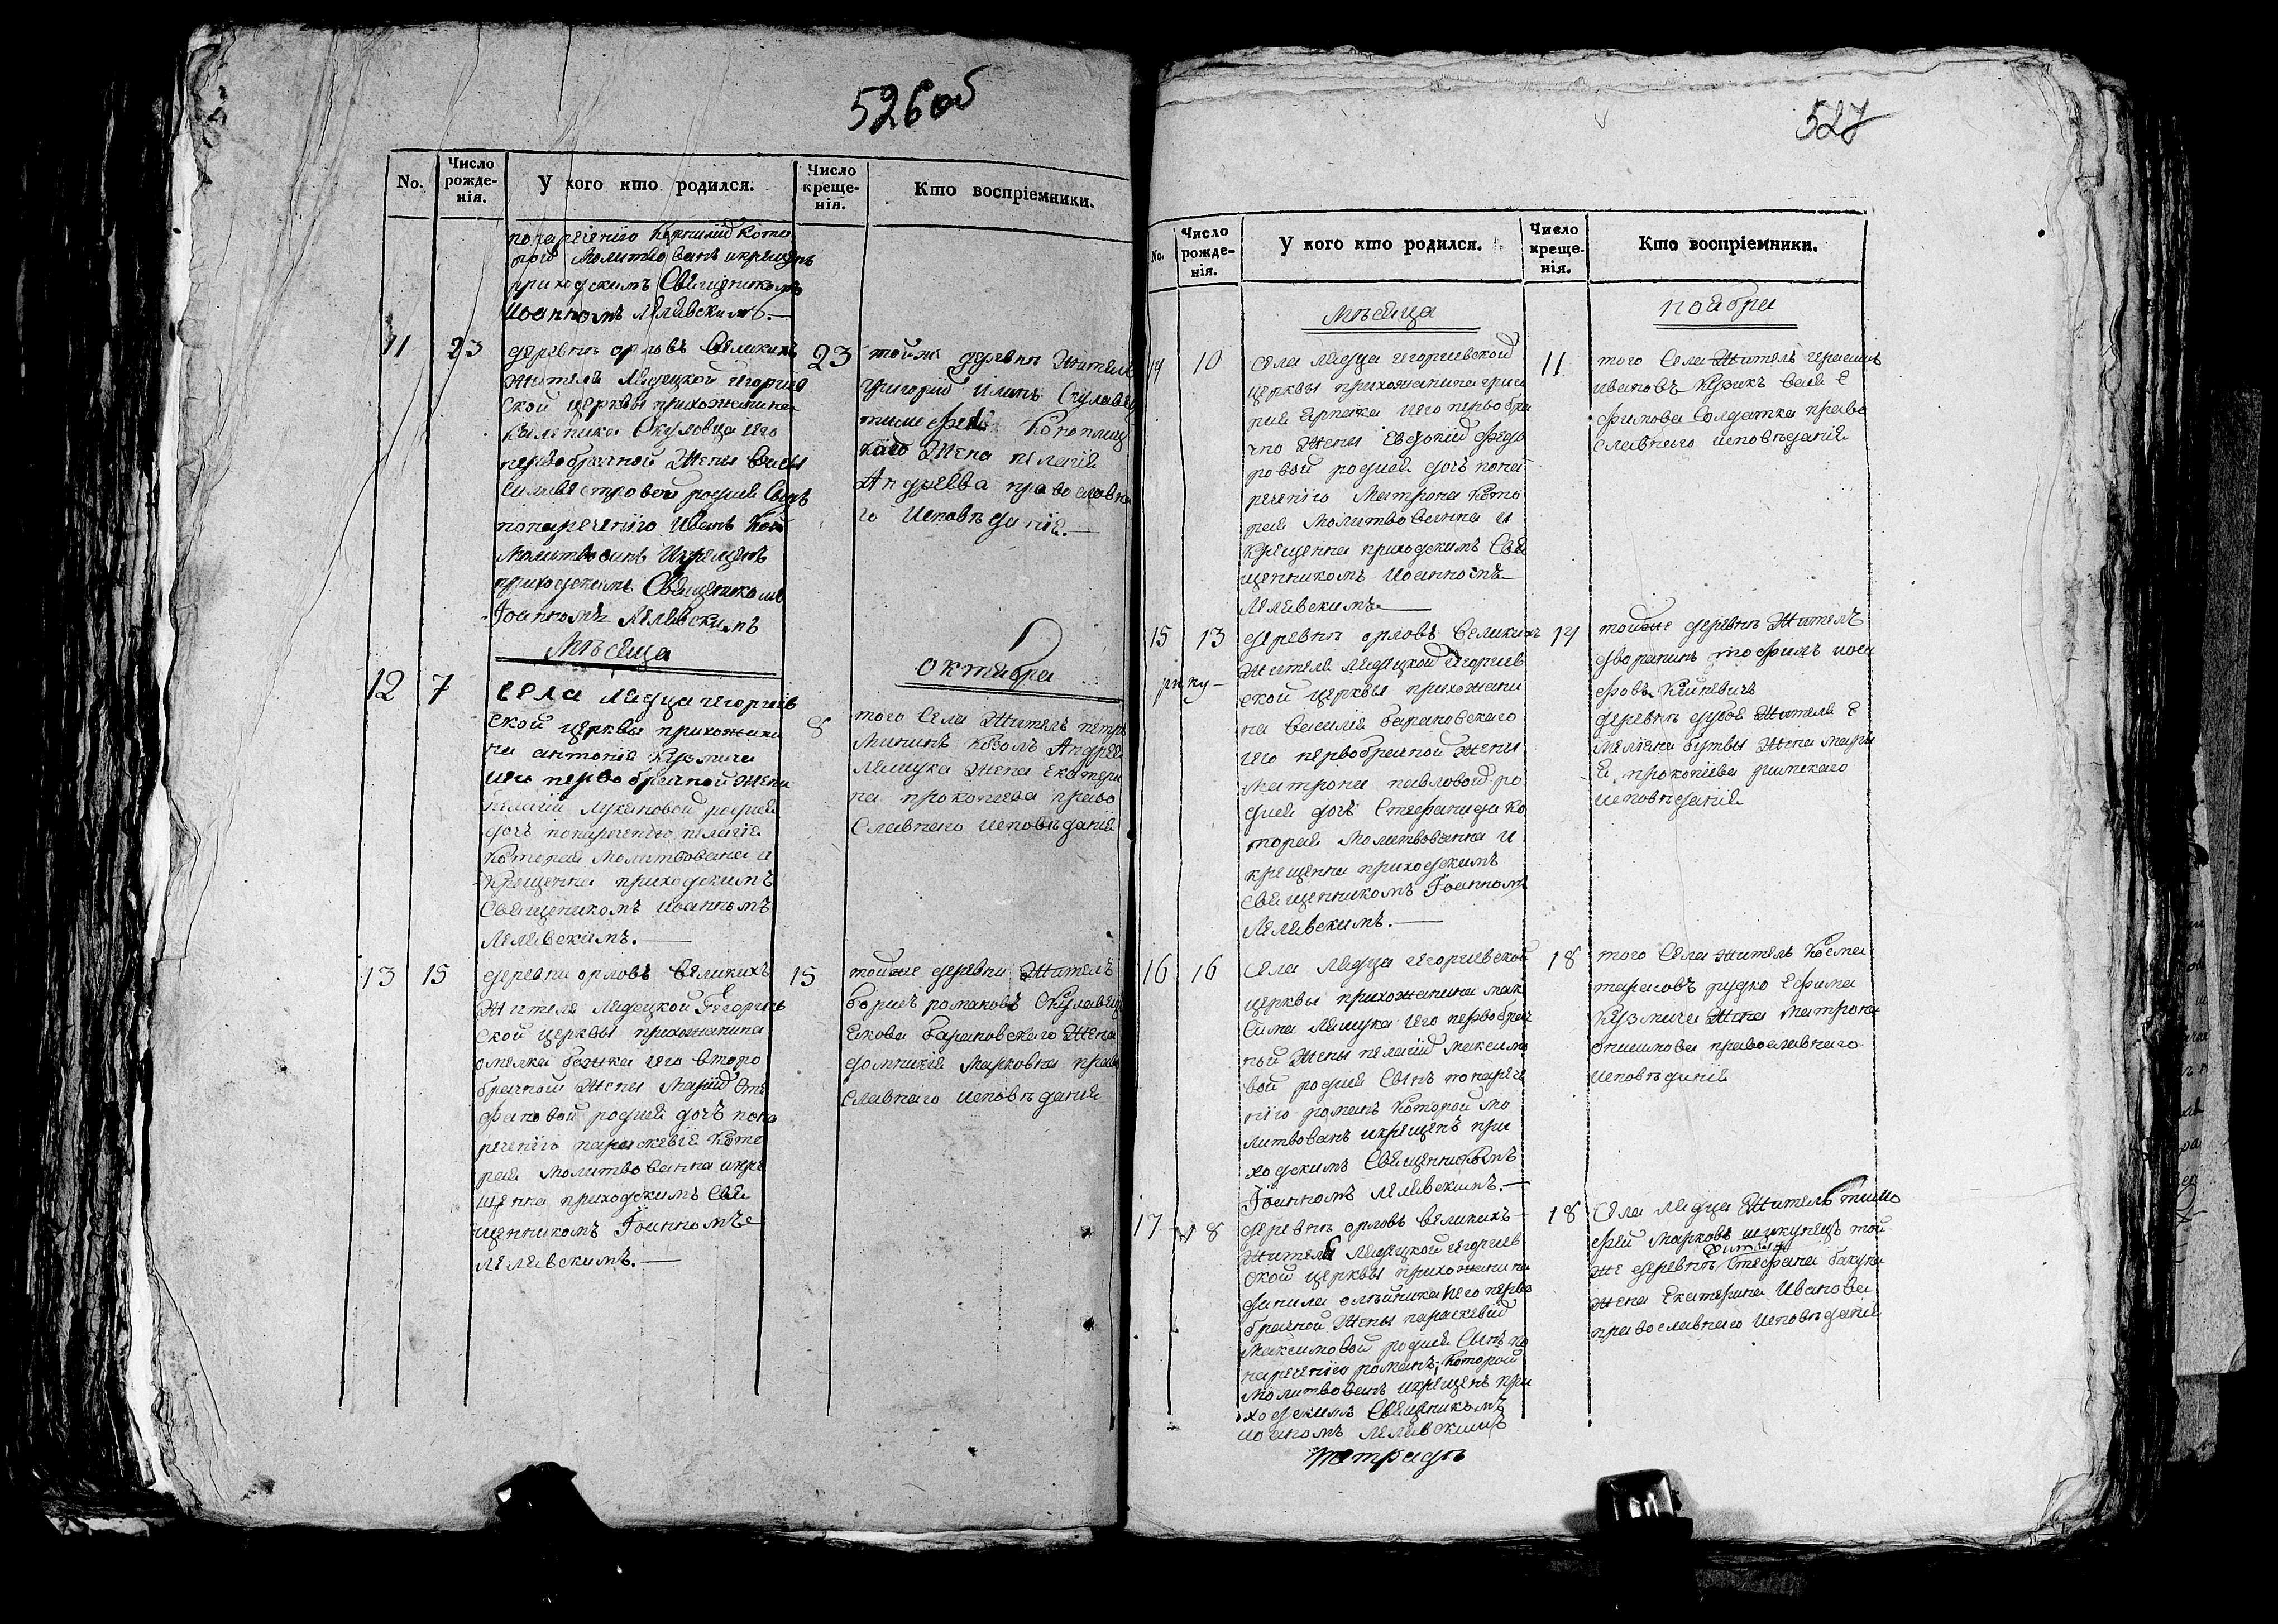 526об
No. Число рожде-нія. У кого кто родился. Число креще-нія. Кто воспріемники.
понареченію Корнилій Кото
рой молитвованъ икрещенъ
приходскимъ Священикомъ
Иоанномъ Лелявскимъ.
11 23 23
деревнѣ орловъ великихъ
жителя Лядецкой Егоргиев
ской церквы прихожанина
Окуловца его
первобрачной жены
Силивестровой родися Сынъ
понареченію Иванъ кой
молитвованъ икрещенъ
приходскимъ Священикомъ
Іоанномъ Лелявскимъ
тойж деревнѣ житель
григорий Илинъ
жена пелагія
Андреева православна
го исповѣданія.
мѣсяца октября
12 7 8
села лядца Егоргиев
ской церквы прихожани
на антонія Кузмича
его первобрачной жены
пелагіи Лукяновой родися
дочъ понареченію пелагія
которая молитвована и
крещенна приходскимъ
священикомъ иоанномъ
Лелявскимъ.
того села житель петръ
Мининъ козолъ Андрея
Лемиука жена Екатери
на прокопиева право
славнаго исповѣданія
13 15 15
деревни орловъ великихъ
жителя лядецкой Егоргиев
ской церквы прихожанина
омелка божка его второ
брачной жены Маріи Сте
фановой родися дочъ пона
реченію параскевія кото
рая молитвованна икре
щенна приходскимъ свя
щенникомъ Іоанномъ
Лелявскимъ.
тойже деревни житель
борисъ романовъ Окулавец
Якова барановского жена
домникія Марковна право
славнаго исповѣданія
527
No. Число рожде-нія. У кого кто родился. Число креще-нія. Кто воспріемники.
мѣсяца ноября
14 10 11
села лядца Егоргиевской
церквы прихожанина григо
рия его первобра
чно жены Евдокіи Федо
ровой родися дочъ пона
реченію Матрона кото
рая молитвованна и
крещенна приходскимъ свя
щенникомъ иоанномъ
Лелявскимъ
того села житель герасимъ
ивановъ
Фимова солдатка право
славнаго исповѣданія
15 13 14
деревнѣ орловъ великихъ
жителя лядецкой Егоргиев
ской церквы прихожани
на василія барановскаго
его первобрачной жены
матроны павловой ро
дися дочъ Стефанида ко
торая молитвованна и
крещенна приходскимъ
священникомъ Іоанномъ
Лелявскимъ.
тойже деревнѣ житель
дворанинъ тофилъ иоси
фовъ
деревнѣ дубоя жителя Е
меляна бутвы жена мари
я прокопіева римскаго
исповѣданія
16 16 18
села лядца Егоргиевской
церквы прихожанина мак
сима лемиука его первобрач
ной жены пелагіи максимо
вой родися сынъ понарече
нію романъ которой мо
литвованъ икрещенъ при
ходскимъ священникомъ
Іоанномъ Лелявскимъ.
того села житель Косма
тарасовъ рудко Ефима
Кузмича жена матрона
онисимова православнаго
исповѣданія
17 18 18
деревнѣ орловъ великихъ
жителя лядецкой Егоргиев
ской церквы прихожанина
данила олѣйника его перво
брачной жены параскевіи
Максимовой родися сынъ по
нареченію романъ, которой
молитвованъ икрещенъ при
ходскимъ священикомъ
иоаномъ Лелявскимъ
села лядца житель тимо
фей марковъ той
же деревнѣ Стефана бакуна
жена Екатерина Иванова
православнаго исповѣданія